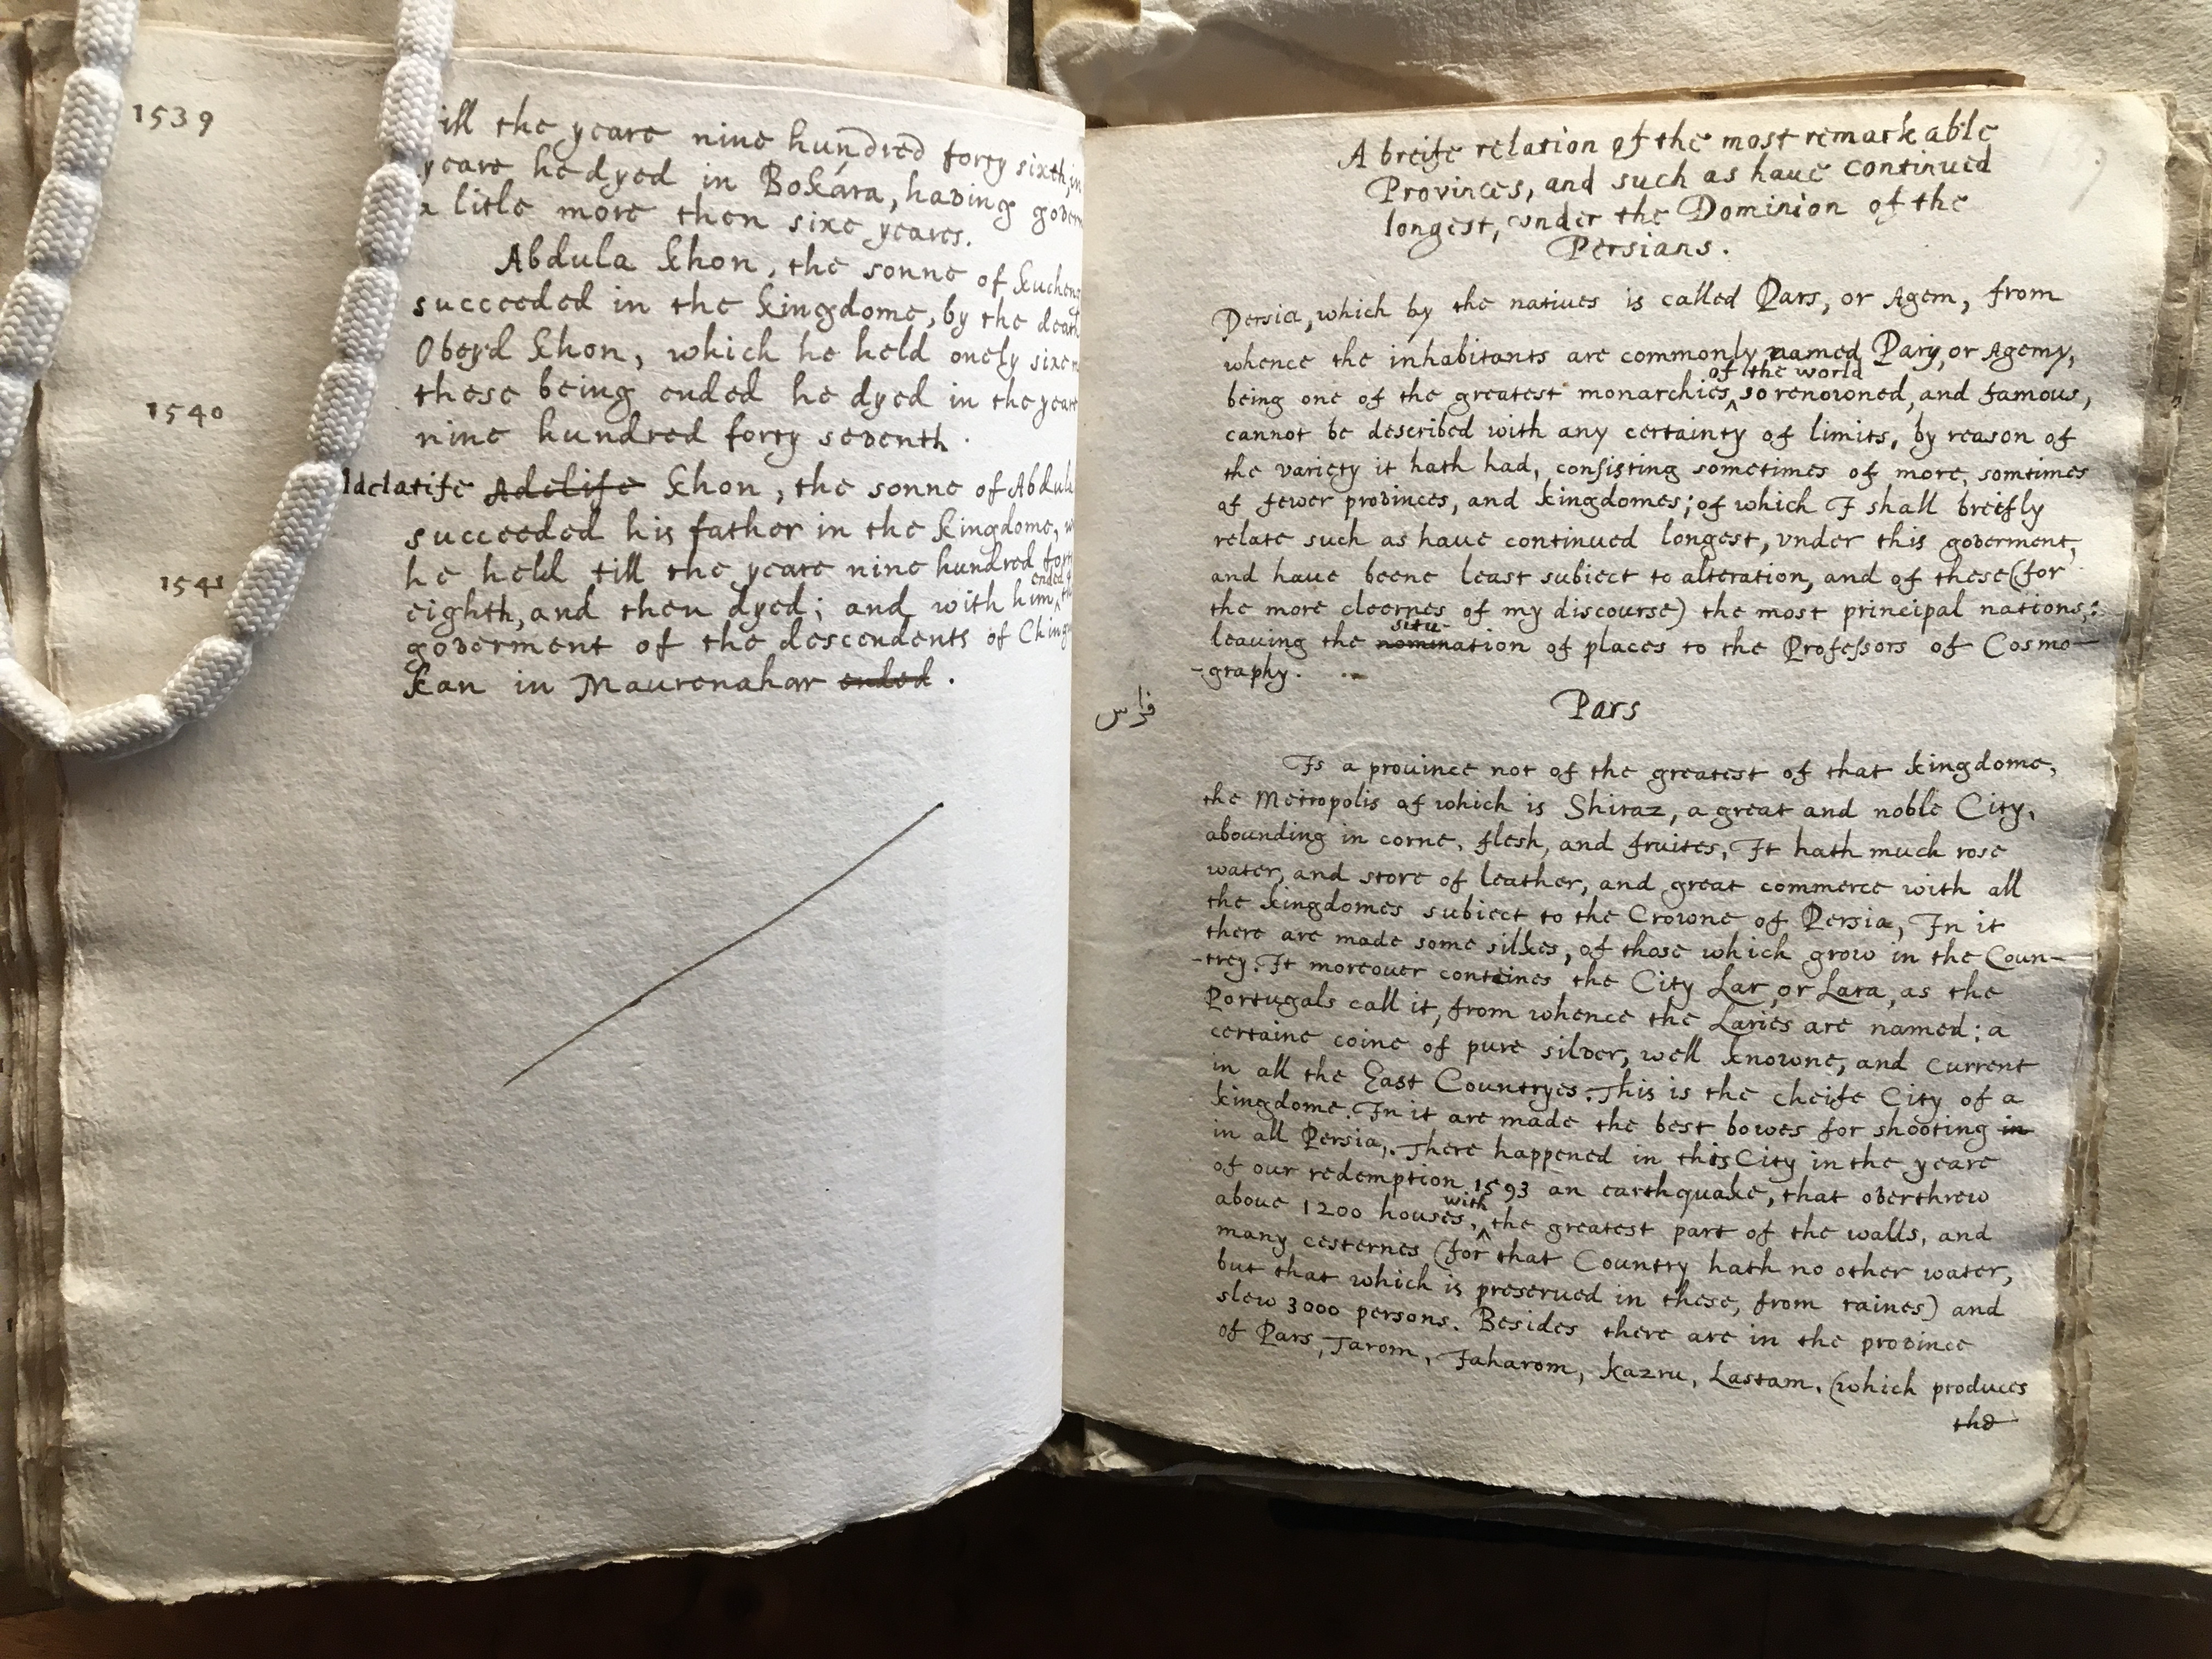 1539
till the yeare nine hundred forty sixth, in
yeare he dyed in Bokára, having govern
a litle more then sixe yeares.
Abdula Khon, the sonne of Kuchen
succeeded in the kingdome, by the death
Obeyd Khon, which he held onely sixe
1540
these being ended he dyed in the yeare
nine hundred forty seventh.
Adelife Khon, the sonne of Abdula
succeeded his father in the kingdome,
1541
he held till the yeare nine hundred forty
ended
eighth, and then dyed; and with him,
goverment of the descendents of Ching
Kan in Maurenahar ended.
A breife relation of the most remarkable
Provinces, and such as haue continued
longest, vnder the Dominion of the
Persians.
Persia, which by the natives is called Pars, or Agem, from
whence the inhabitants are commonly named Parsy, or Agemy,
of the world
being one of the greatest monarchies, so renowned, and famous,
cannot be described with any certainty of limits, by reason of
the variety it hath had, consisting sometimes of more, somtimes
of fewer provinces, and kingdomes; of which I shall breifly
relate such as haue continued longest, vnder this goverment,
and haue beene least subiect to alteration, and of these (for
the more cleernes of my discourse) the most principal nations;
situ-
leaving the nomination of places to the Professors of Cosmo-
-graphy.
فارس
Pars
Is a prouince not of the greatest of that kingdome,
the Metropolis of which is Shiraz, a great and noble City,
abounding in corne, flesh, and fruites, It hath much rose
water, and store of leather, and great commerce with all
the kingdomes subiect to the Crowne of Persia, In it
there are made some silkes, of those which grow in the Coun-
-trey. It moreouer conteines the City Lar, or Lara, as the
Portugals call it, from whence the Laries are named: a
certaine coine of pure silver, well knowne, and current
in all the East Countryes. This is the cheife City of a
kingdome. In it are made the best bowes for shooting in
in all Persia,. There happened in this City in the yeare
of our redemption 1593 an earthquake, that overthrew
with
above 1200 houses, the greatest part of the walls, and
many cesternes (for that Country hath no other water,
but that which is preserued in these, from raines) and
slew 3000 persons. Besides there are in the province
of Pars, Jarom, Jaharom, Kazru, Lastam, (which produces
the